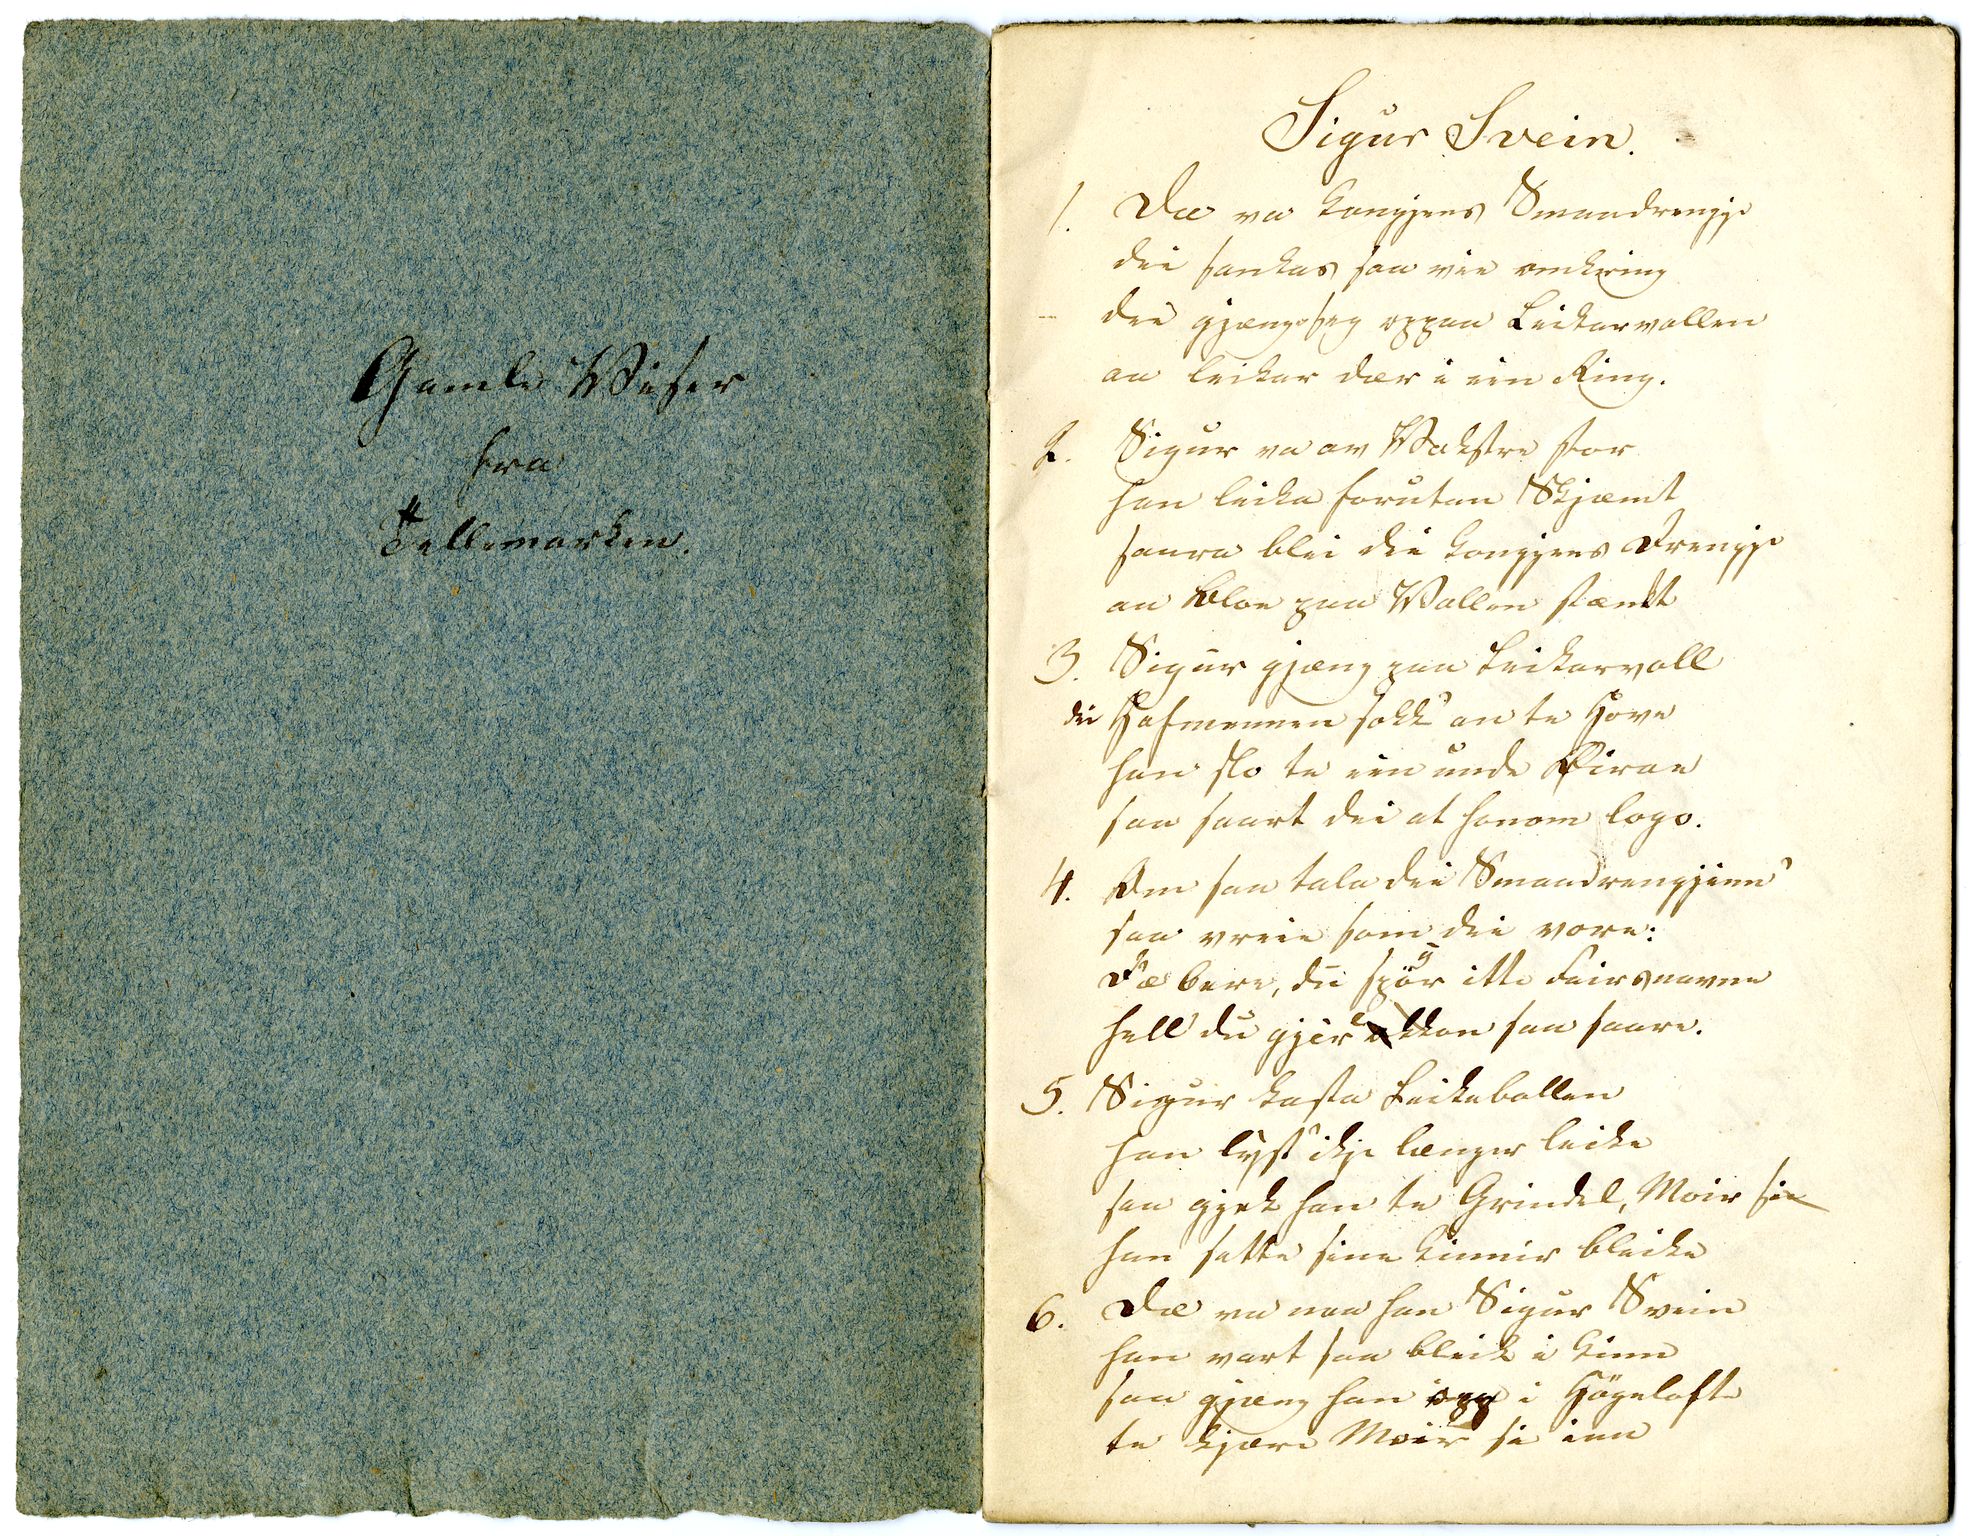 Gamle Viser
fra
Tellemarken.
Sigur Svein.
1. Dæ va Kongjens Smaadrengje
dei sankas saa vie omkring
dei gjæng seg oppaa Leikarvollen
aa leikar dær i ein Ring.
2. Sigur va av Vokstre stor
han leika forutan Skjæmt
saara blei dei Kongjens Drengje
aa Bloe paa Vollen stænkt
3. Sigur gjæng paa Leikarvoll
dei Hofmennen sokk' an te Hove
han slo te ein unde Øiraa
saa saart dei at honom logo.
4. Om saa tala dei Smaadrengjinn'
saa vreie som dei vore:
Dæ bere, du spör itte Feirsnavne
hell du gjer okkon saa saare.
5. Sigur kasta Leikeballen
han lyst' ikje længer leike
saa gjek han te Grindel, Moir si
han sette sine Kinnir bleike
6. Dæ va naa han Sigur Svein
han vart saa bleik i Kinn
saa gjæng han opp i Högelofte
te kjære Moir si inn